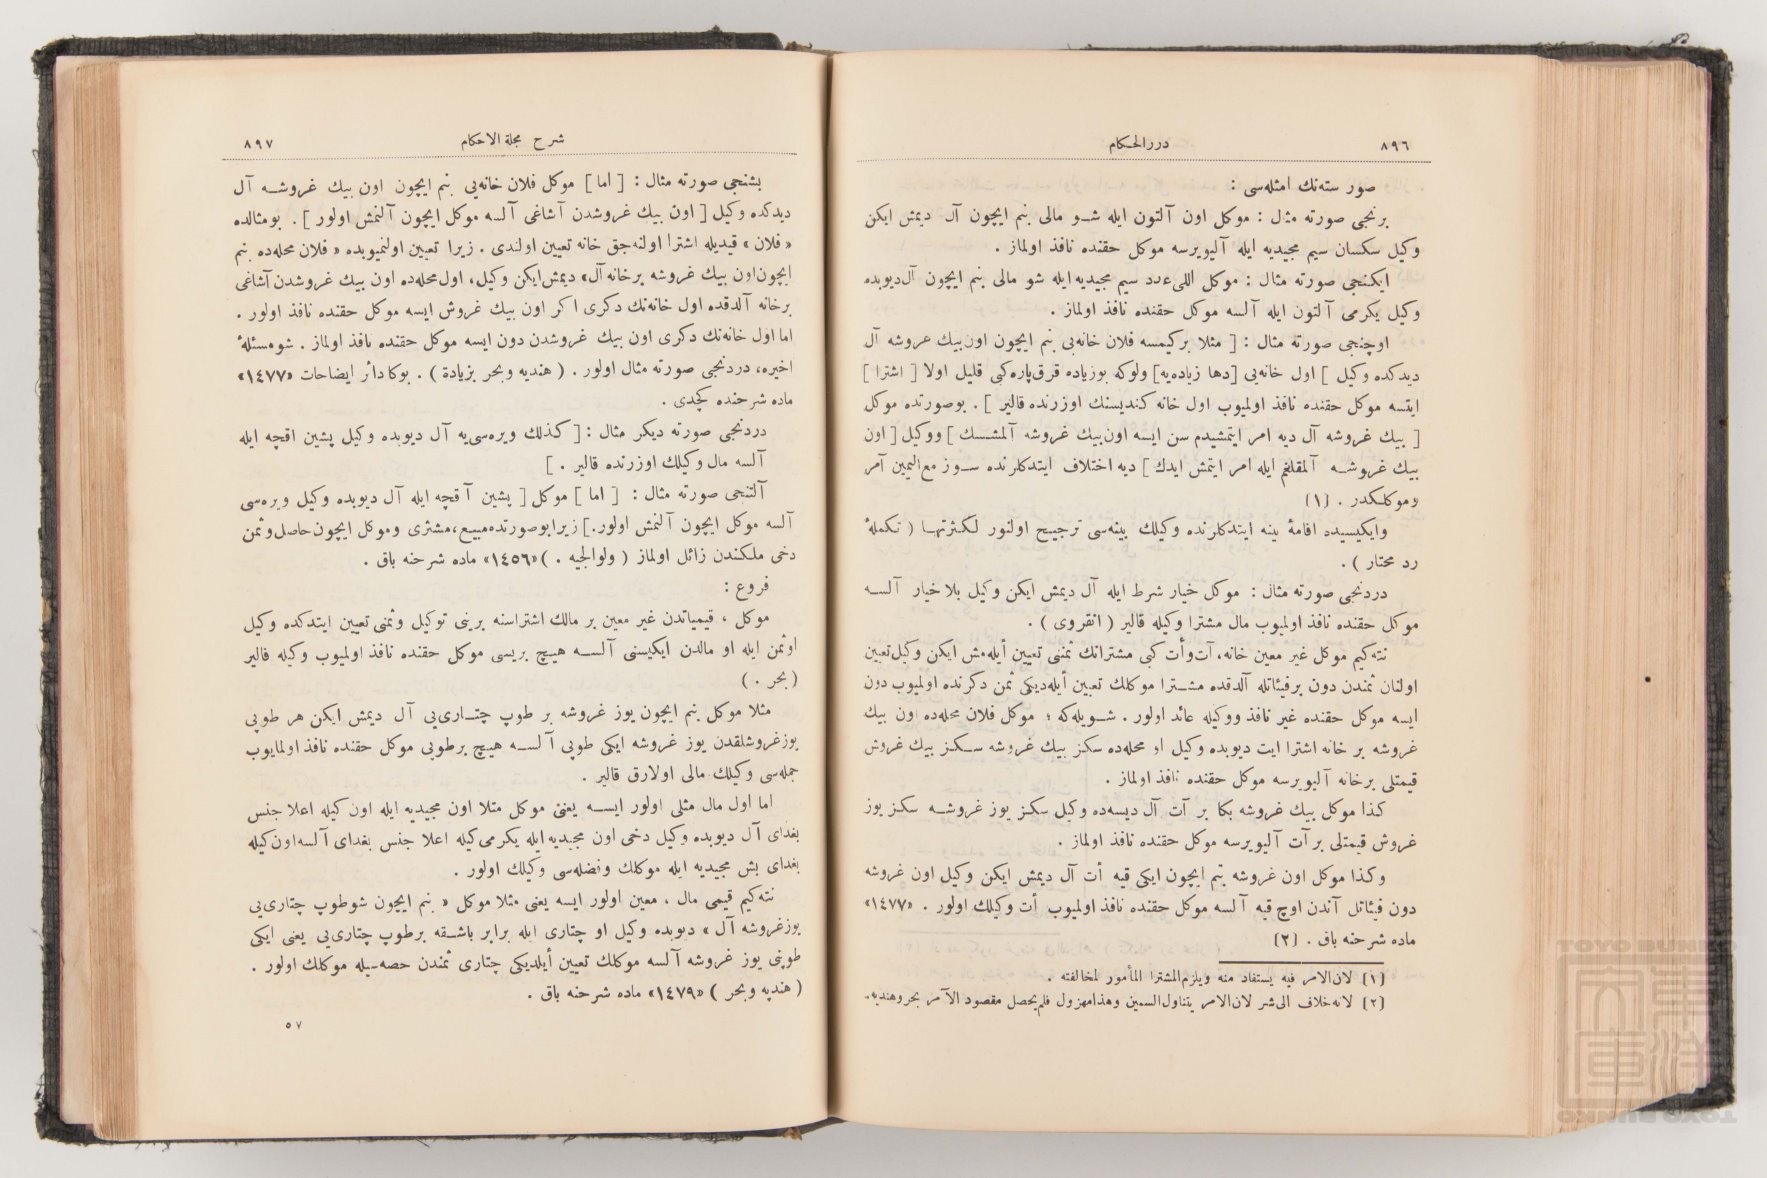 ٨٩٦
دررالحكام
صور ستەنك امثلەسی :
برنجی صورتە مثال : موكل اون آلتون ایلە شو مالی بنم ایچون آل دیمش ایكن
وكیل سكسان سیم مجیدیە ایلە آلیویرسە موكل حقندە نافذ اولماز .
ایكنجی صورتە مثال : موكل اللی عدد سیم مجیدیە ایلە شو مالی بنم ایچون آل دیوبدە
وكیل یكرمی آلتون ایلە آلسە موكل حقندە نافذ اولماز .
اوچنجی صورتە مثال : [ مثلا بركیمسە فلان خانەیی بنم ایچون اون بیك غروشە آل
دیدكدە وكیل ] اول خانەیی [دها زیادەیە] ولوكە بوزیادە قرق پارە كبی قلیل اولا [ اشترا ]
ایتسە موكل حقندە نافذ اولمیوب اول خانە كندیسنك اوزرندە قالیر ] . بوصورتدە موكل
[ بیك غروشە آل دیە امر ایتمشیدم سن ایسە اون بیك غروشە آلمشسك ] ووكیل [ اون
بیك غروشە آلمقلغم ایلە امر ایتمش ایدك ] دیە اختلاف ایتدكلرندە سوز مع الیمین آمر
وموكلكدر . (١)
وایكیسیدە اقامۀ بینە ایتدكلرندە وكیلك بینەسی ترجیح اولنور لكثرتها ( تكملۀ
رد محتار ) .
دردنجی صورتە مثال : موكل خیار شرط ایلە آل دیمش ایكن وكیل بلا خیار آلسە
موكل حقندە نافذ اولمیوب مال مشترا وكیلە قالیر ( انقروی ) .
نتەكیم موكل غیر معین خانە، آت وأت كبی مشتراتك ثمننی تعیین أیلەمش ایكن وكیل تعیین
اولنان ثمندن دون برفیئاتلە آلدقدە مشترا موكلك تعیین أیلەدیكی ثمن دكرندە اولمیوب دون
ایسە موكل حقندە غیر نافذ ووكیلە عائد اولور . شویلەكە ؛ موكل فلان محلەدە اون بیك
غروشە بر خانە اشترا ایت دیوبدە وكیل او محلەدە سكز بیك غروشە سكز بیك غروش
قیمتلی برخانە آلیویرسە موكل حقندە نافذ اولماز .
كذا موكل بیك غروشە بكا بر آت آل دیسەدە وكیل سكز یوز غروشە سكز یوز
غروش قیمتلی بر آت آلیویرسە موكل حقندە نافذ اولماز .
وكذا موكل اون غروشە بنم ایچون ایكی قیە أت آل دیمش ایكن وكیل اون غروشە
دون فیئاتل آندن اوچ قیە آلسە موكل حقندە نافذ اولمیوب أت وكیلك اولور . «١٤٧٧»
مادە شرحنە باق . (٢)
(١) لان الامر فیە یستفاد منە ویلزم المشترا المأمور لمخالفتە .
(٢) لانە خلاف الی شر لان الامر یتناول السمین وهذا مهزول فلم یحصل مقصود الآمر بحر وهندیە.
شرح مجلة الاحكام
٨٩٧
بشنجی صورتە مثال : [ اما ] موكل فلان خانەیی بنم ایچون اون بیك غروشە آل
دیدكدە وكیل [ اون بیك غروشدن آشاغی آلسە موكل ایچون آلنمش اولور ] . بومثالدە
« فلان » قیدیلە اشترا اولنەجق خانە تعیین اولندی . زیرا تعیین اولنمیوبدە « فلان محلەدە بنم
ایچون اون بیك غروشە برخانە آل» دیمش ایكن وكیل، اول محلەدە اون بیك غروشدن آشاغی
برخانە آلدقدە اول خانەنك دكری اكر اون بیك غروش ایسە موكل حقندە نافذ اولور .
اما اول خانەنك دكری اون بیك غروشدن دون ایسە موكل حقندە نافذ اولماز . شومسئلۀ
اخیرە، دردنجی صورتە مثال اولور . ( هندیە وبحر بزیادة ) . بوكا دائر ایضاحات «١٤٧٧»
مادە شرحندە كچدی .
دردنجی صورتە دیكر مثال : [ كذلك ویرەسییە آل دیوبدە وكیل پشین اقچە ایلە
آلسە مال وكیلك اوزرندە قالیر . ]
آلتنجی صورتە مثال : [ اما ] موكل [ پشین آقچە ایلە آل دیوبدە وكیل ویرەسی
آلسە موكل ایچون آلنمش اولور.] زیرا بوصورتدە مبیع، مشتری وموكل ایچون حاصل وثمن
دخی ملكندن زائل اولماز ( ولوالجیە . ) «١٤٥٦» مادە شرحنە باق .
فروع :
موكل ، قیمیاتدن غیر معین بر مالك اشتراسنە برینی توكیل وثمنی تعیین ایتدكدە وكیل
اوثمن ایلە او مالدن ایكیسنی آلسە هیچ بریسی موكل حقندە نافذ اولمیوب وكیلە قالیر
( بحر . )
مثلا موكل بنم ایچون یوز غروشە بر طوپ چتارییی آل دیمش ایكن هر طوپی
یوزغروشلقدن یوز غروشە ایكی طوپی آلسە هیچ برطوپی موكل حقندە نافذ اولمایوب
جملەسی وكیلك مالی اولارق قالیر .
اما اول مال مثلی اولور ایسە یعنی موكل مثلا اون مجیدیە ایلە اون كیلە اعلا جنس
بغدای آل دیوبدە وكیل دخی اون مجیدیە ایلە یكرمی كیلە اعلا جنس بغدای آلسە اون كیلە
بغدای بش مجیدیە ایلە موكلك وفضلەسی وكیلك اولور .
نتەكیم قیمی مال ، معین اولور ایسە یعنی مثلا موكل « بنم ایچون شوطوپ چتارییی
یوزغروشە آل » دیوبدە وكیل او چتاری ایلە برابر باشقە برطوپ چتارییی یعنی ایكی
طوپی یوز غروشە آلسە موكلك تعیین أیلدیكی چتاری ثمندن حصەسیلە موكلك اولور .
( هندیە وبحر ) «١٤٧٩» مادە شرحنە باق .
٥٧
TOYO BUNKO